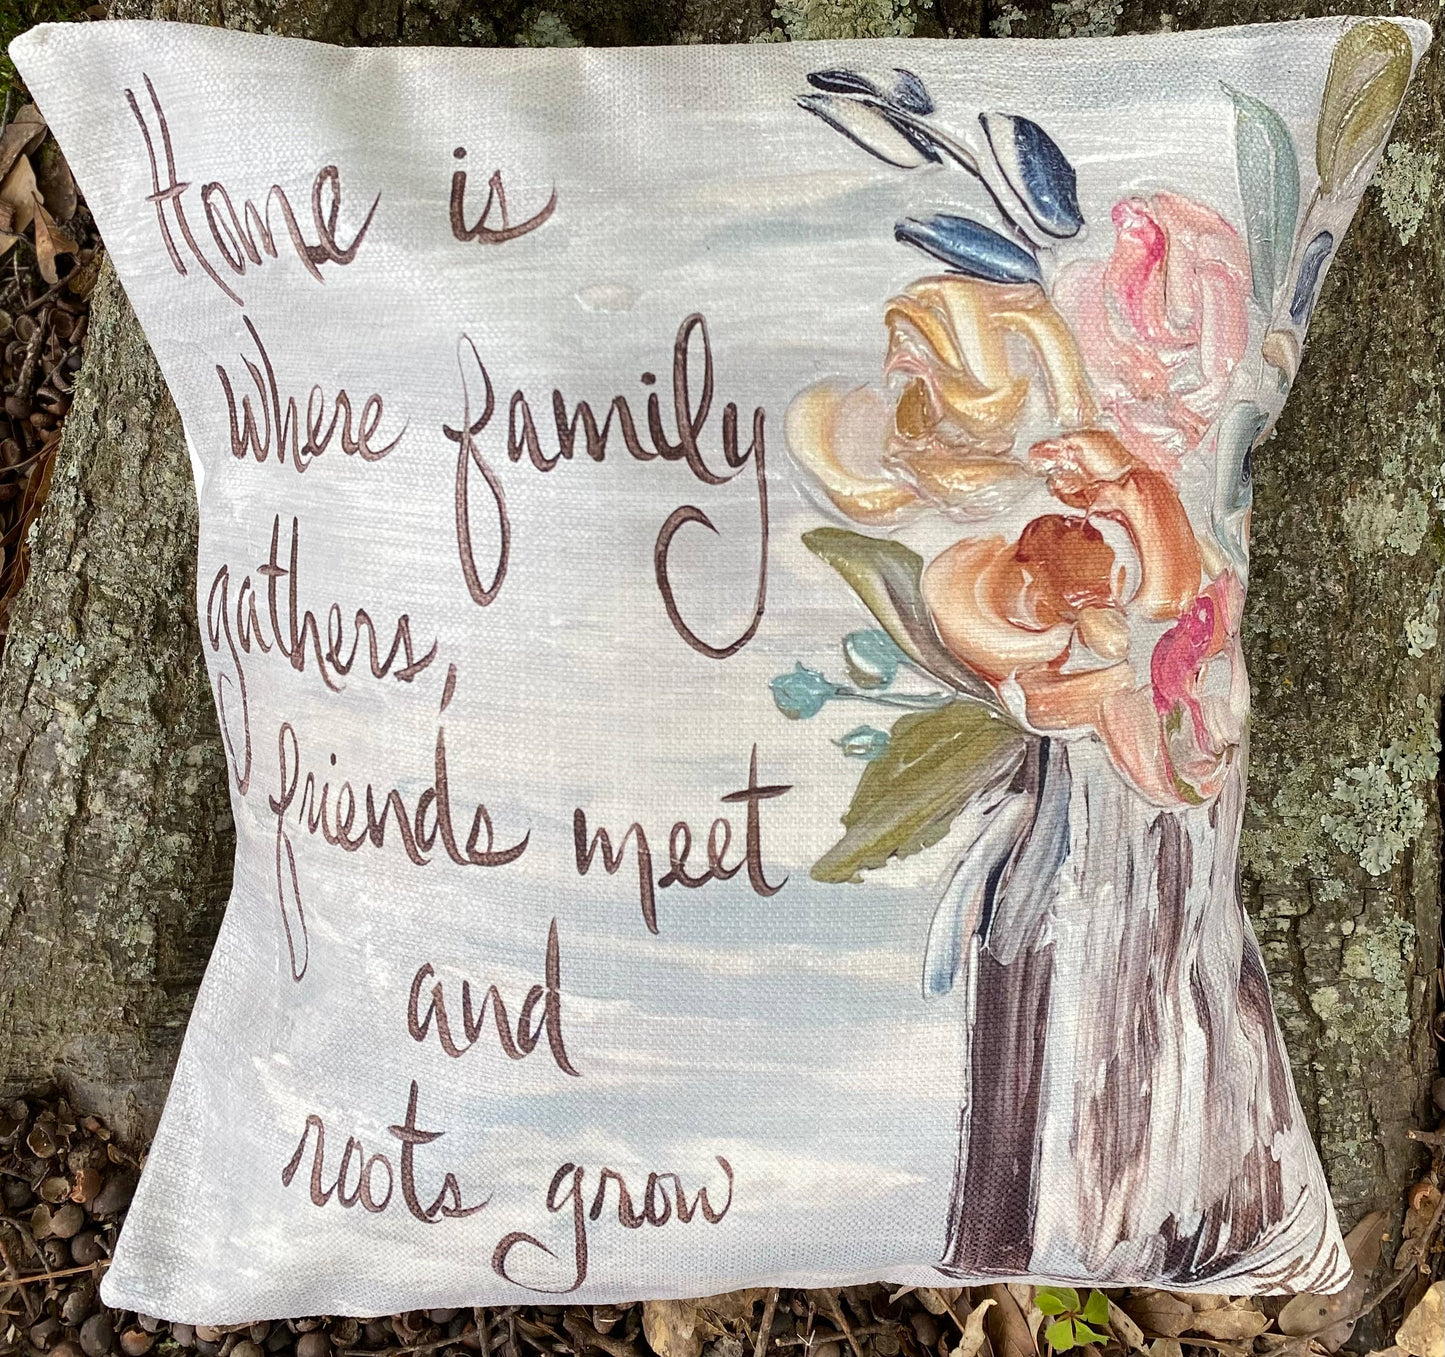 Home is
where family
gathers,
friends meet
and
roots grow